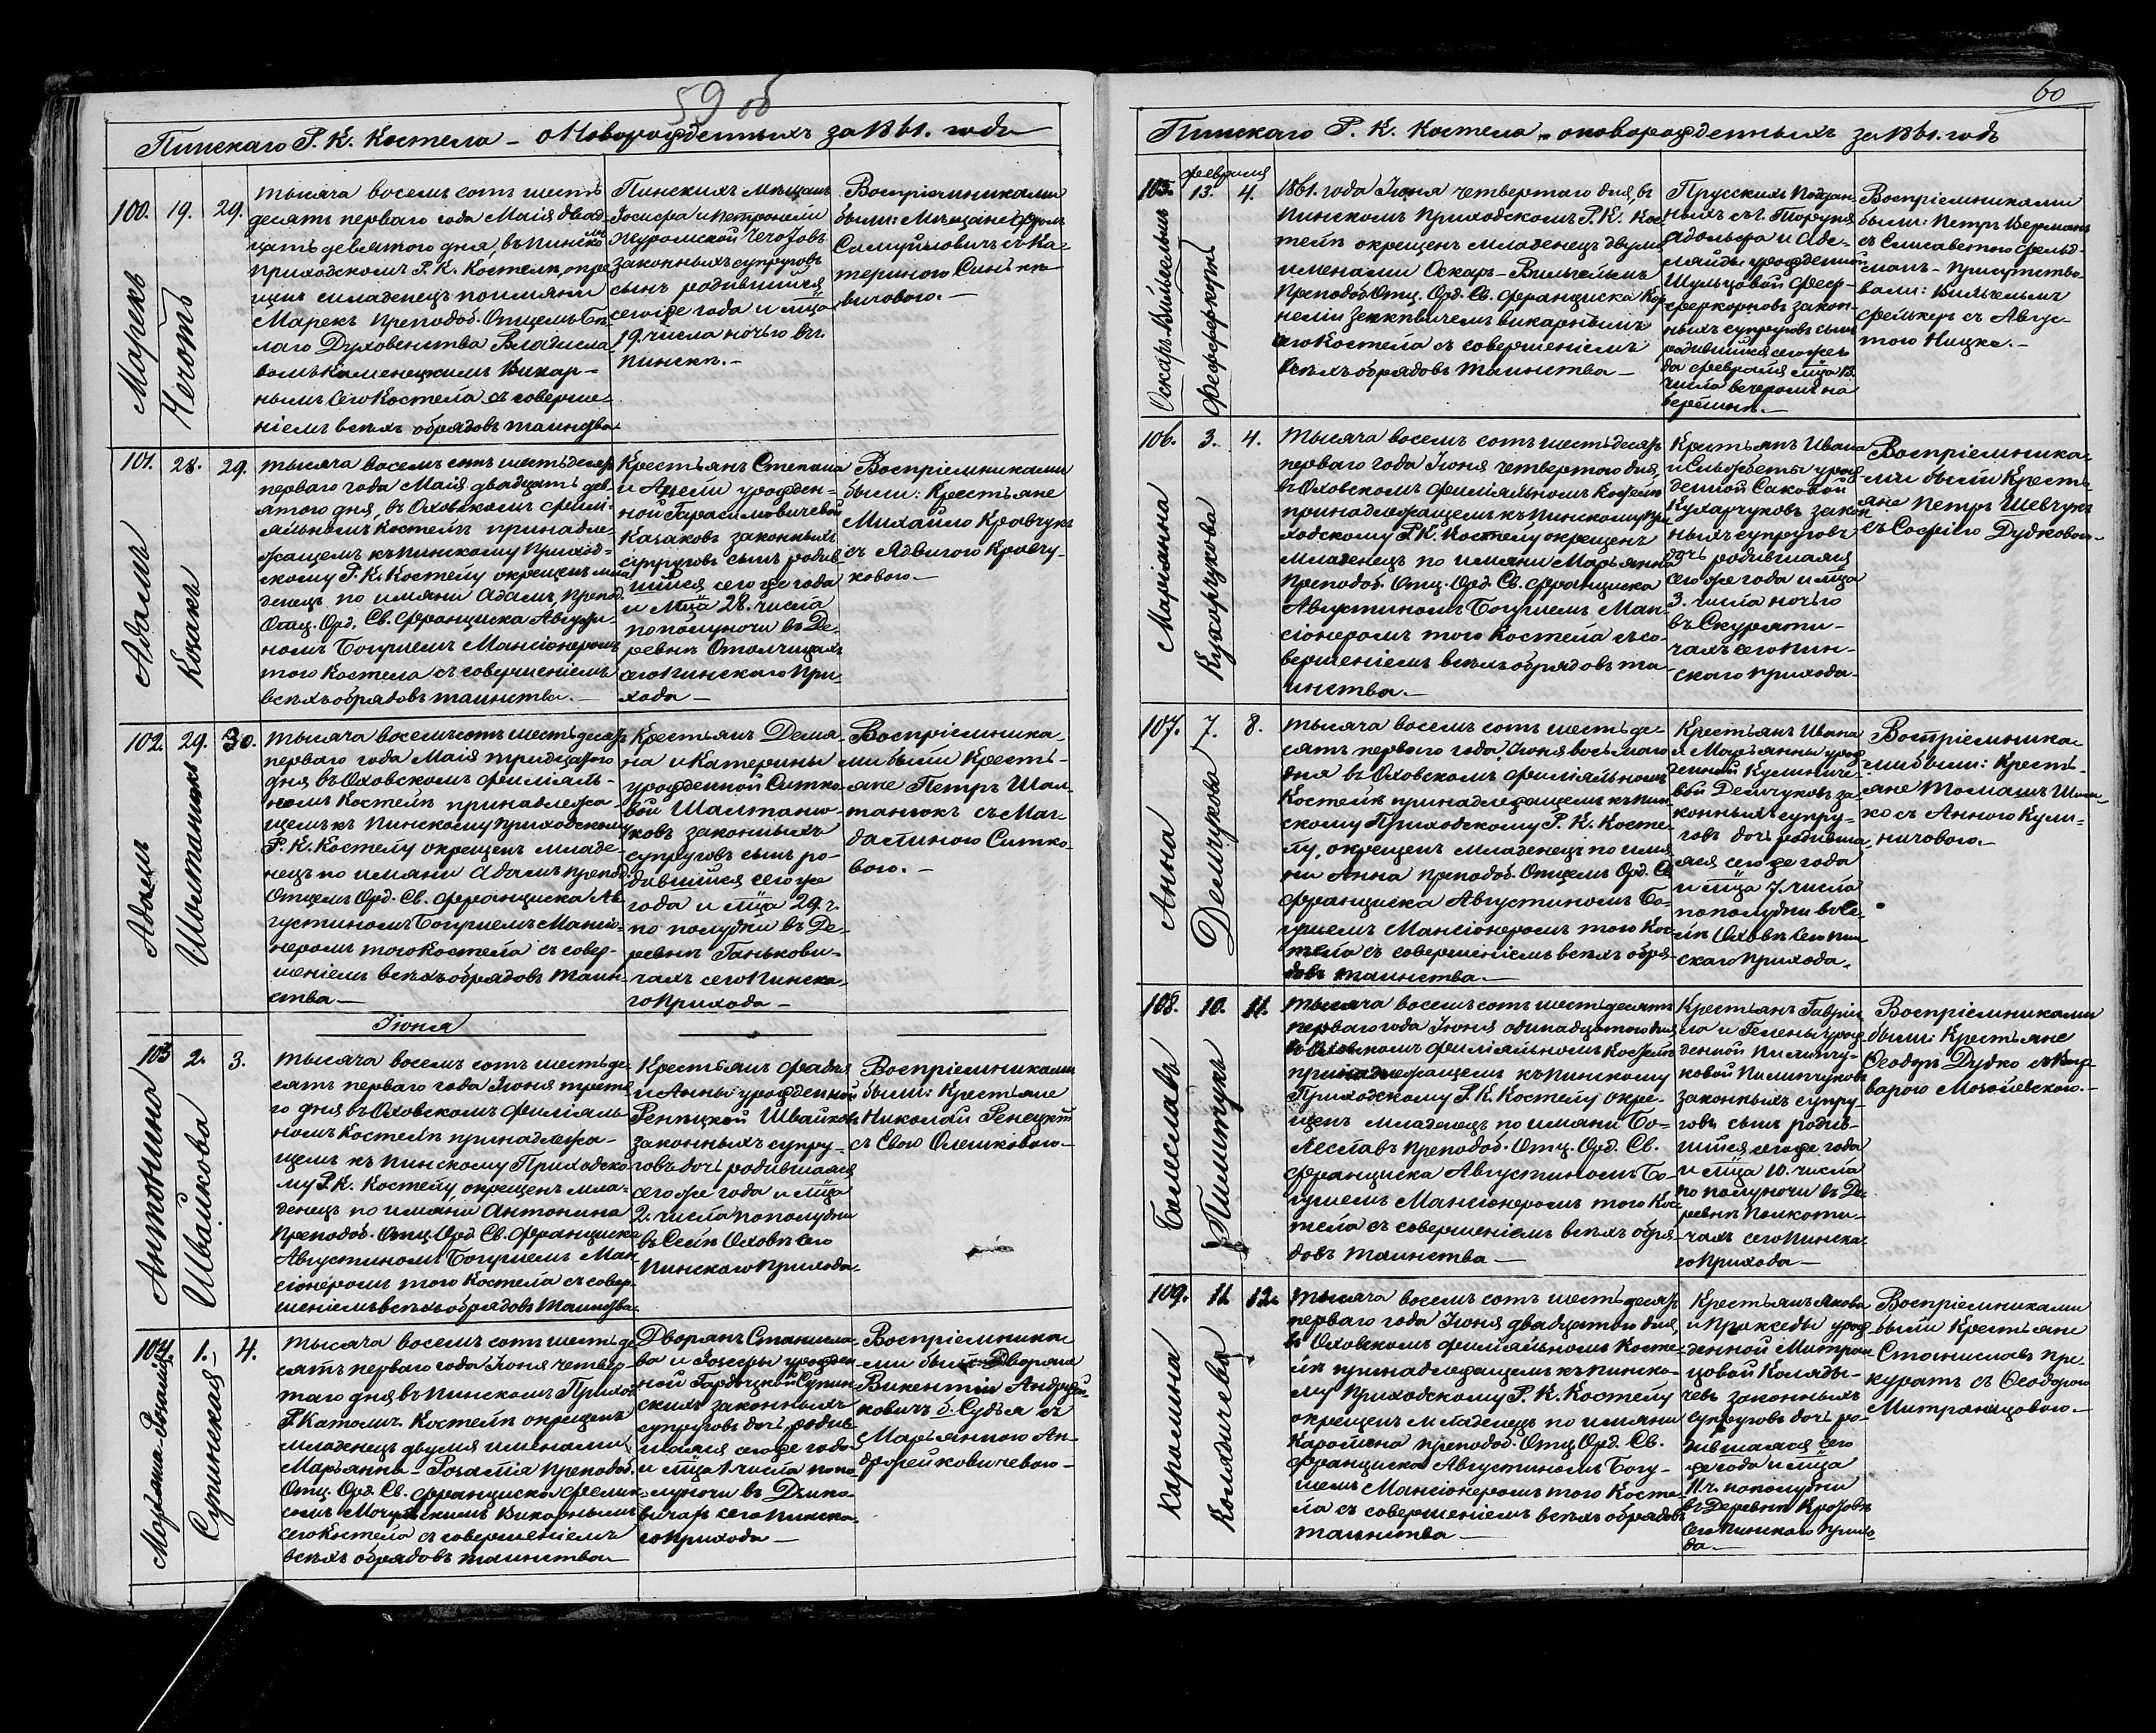 59 об
Пинскаго Р. К. Костела – о Новорожденныхъ за 1861. годъ
100. 19. 29.
Марекъ
Чечотъ
тысяча восемь сотъ шесть
десятъ перваго года Маія двад-
цать девятого дня, въ Пинскомъ
приходскомъ Р. К. Костелѣ, окре
щенъ младенецъ по имяни
Марекъ Преподоб. Отцемъ Бѣ-
лаго Духовенства Владисла
вомъ Каменецкимъ Викар-
нымъ сего Костела съ соверше-
ніемъ всѣхъ обрядовъ таинства
Пинскихъ Мѣщанъ
Іосифа и Петронели
Журомской Чечотовъ
законныхъ супруговъ
сынъ родившійся
сего же года и мца
19. числа ночью въ г.
Пинскѣ.–
Воспріемниками
были: Мѣщане
Самуйловичъ съ Ка-
териною Синькѣ-
вичовою.–
101. 28. 29.
Адамъ
Козакъ
тысяча восемь сотъ шестьдесятъ
перваго года Маія двадцать дев
ятого дня, въ Оховскомъ филі-
яльномъ Костелѣ принадле-
жащемъ къ Пинскому Приход-
скому Р. К. Костелу окрещенъ мла
денецъ по имяни Адамъ, препод.
Отц. Орд. Св. Франциска Августи-
номъ Богушемъ Мансіонеромъ
того Костела съ совершеніемъ
всѣхъ обрядовъ таинства.–
Крестьянъ Степана
и Анели урожден-
ной Гарасимовичевой
Казаковъ законныхъ
супруговъ сынъ родив
шійся сего же года
и мца 28. числа
пополуночи въ Де-
ревнѣ Отолчицахъ
сего Пинскаго При-
хода –
Воспріемниками
были: Крестьяне
Михайло Кравчукъ
съ Ядвигою Кравчу-
ковою.–
102. 29. 30.
Адамъ
Шолтанюкъ
тысяча восемь сотъ шестьдесятъ
перваго года Маія тридцатого
дня въ Оховскомъ филіяль-
номъ Костелѣ принадлежа
щемъ къ Пинскому приходскому
Р. К. Костелу окрещенъ младе-
нецъ по имяни Адамъ препод.
Отцемъ Орд. Св. Франциска Ав
густиномъ Богушемъ Мансіо-
неромъ того Костела съ совер-
шеніемъ всѣхъ обрядовъ Таин-
ства –
Крестьянъ Демя-
на и Катерины
урожденной Ситко-
вой Шалтаню-
ковъ законныхъ
супруговъ сынъ ро-
дившійся сего же
года и мца 29. ч.
по полудни въ Де-
ревнѣ Ганькови-
чахъ сего Пинска-
го Прихода –
Воспріемника
ми были Кресть-
яне Петръ Шал-
танюкъ съ Маг-
далиною Ситко-
вою.–
Іюня
103 2. 3.
Антонина
Швайкова
тысяча восемь сотъ шестьде
сятъ перваго года Іюня третя
го дня въ Оховскомъ филіяль
номъ Костелѣ принадлежа-
щемъ къ Пинскому Приходско
му Р. К. Костелу, окрещенъ мла-
денецъ по имяни Антонина
Преподоб. Отц. Орд. Св. Франциска
Августиномъ Богушемъ Ман-
сіонеромъ того Костела съ совер
шеніемъ всѣхъ обрядовъ Таинства.
Крестьянъ Фадѣя
и Анны урожденной
Ренѣцкой Швайковъ
законныхъ супру-
говъ дочь родившаяся
сего же года и мца
2. числа пополудни
въ Селѣ Оховѣ сего
Пинскаго Прихода.
Воспріемниками
были: Крестьяне
Николай Ренецкій
съ Евою Олешковою.–
104. 1. 4.
Марьяна-Розалія
Супинская –
тысяча восемь сотъ шестьде
сятъ перваго года Іюня четвер
таго дня въ Пинскомъ Приход.
Р. Католич. Костелѣ окрещенъ
младенецъ двумя именами
Марьянна – Розалія преподоб.
Отц. Орд. Св. Франциска Фелик-
сомъ Викарнымъ
сего Костела съ совершеніемъ
всѣхъ обрядовъ таинства –
Дворянъ Станисла-
ва и Іозефы урожден
ной Супин
скихъ законныхъ
супруговъ дочь родив
шаяся сего же года
и мца 1. числа попо
луночи въ
вичахъ сего Пинска
го Прихода –
Воспріемника
ми были Дворяна
Викентій Андрей-
ковичъ б. Судья съ
Марьянною Ан-
дрейковичевою –
60
Пинскаго Р. К. Костела – о новорожденныхъ за 1861. годъ
105. февраля 13. 4.
Оскаръ-Вильгельмъ
Фефферкорнъ
1861. года Іюня четвертаго дня, въ
Пинскомъ Приходскомъ Р. К. Кос
телѣ окрещенъ младенецъ двумя
именами Оскаръ – Вильгельмъ
Преподоб. Отц. Орд. Св. Франциска Кор
неліи Зенкевичемъ викарнымъ
сего Костела съ совершеніемъ
всѣхъ обрядовъ таинства –
Прусскихъ Поддан-
ныхъ съ г. Торуня
Адольфа и Аде-
лаиды урожденной
Шульцовой Феф-
феркорновъ закон-
ныхъ супруговъ сынъ
родившійся сего же го
да февраля мца 13.
числа вечеромъ на
Берёзинѣ.–
Воспріемниками
были: Петръ Верманъ
съ Елисаветою Фельд-
манъ – присутство
вали: Вильгельмъ
Фелькеръ съ Авгус-
тою Ницке.–
106. 3. 4.
Маріянна
Кухарчукова
тысяча восемь сотъ шестьдесятъ
перваго года Іюня четвертого дня,
въ Оховскомъ филіяльномъ Костелѣ
принадлежащемъ къ Пинскому При
ходскому Р. К. Костелу окрещенъ
Младенецъ по имяни Марьянна
Преподоб. Отц. Орд. Св. Франциска
Августиномъ Богушемъ Ман-
сіонеромъ того Костела съ со-
вершеніемъ всѣхъ обрядовъ та-
инства.–
Крестьянъ Ивана
и Ельжбеты урож
денной Саковой
Кухарчуковъ закон
ныхъ супруговъ
дочь родившаяся
сего же года и мца
3. числа ночью
въ Скурати-
чахъ сего Пин-
скаго прихода.
Воспріемника-
ми были Кресть-
яне Петръ Шевчукъ
съ Софіею Дудковою.–
107. 7. 8.
Анна
Демчукова
тысяча восемь сотъ шестьде-
сятъ перваго года, Іюня восьмаго
дня въ Оховскомъ филіяльномъ
Костелѣ принадлежащемъ къ Пин
скому Приходскому Р. К. Косте-
лу, окрещенъ младенецъ по имя
ни Анна преподоб. Отцемъ Орд. Св
Франциска Августиномъ Бо-
гушемъ Мансіонеромъ того Кос
тела съ совершеніемъ всѣхъ обря-
довъ таинства.–
Крестьянъ Ивана
и Марьянны урож
денной Кулиниче-
вой Демчуковъ за-
конныхъ супру-
говъ дочь родивша
яся сего же года
и мца 7. числа
пополудни въ Се-
лѣ Оховѣ сего Пин
скаго прихода.
Воспріемника
ми были: Кресть-
яне Томашъ
ко съ Анною Кули-
ничовою.–
108. 10. 11.
Балеславъ
Пилипчукъ
тысяча восемь сотъ шестьдесятъ
перваго года Іюня одинадцатого дня
въ Оховскомъ филіяльномъ Костелѣ
принадлежащемъ къ Пинскому
Приходскому Р. К. Костелу окре-
щенъ младенецъ по имяни Бо-
леславъ преподоб. Отц. Орд. Св.
Франциска Августиномъ Бо-
гушемъ Мансіонеромъ того Кос
тела съ совершеніемъ всѣхъ обря
довъ таинства –
Крестьянъ Гавріи
ла и Гелены урож
денной Пилипчу-
ковой Пилипчуковъ
законныхъ супру-
говъ сынъ родив-
шійся сего же года
и мца 10. числа
по полуночи въ Де
ревнѣ Полкоти-
чахъ сего Пинска
го Прихода –
Воспріемниками
были: Крестьяне
Ѳеодоръ Дудко съ Вар
варою Мозолевскою.–
109. 11. 12.
Каролина
Колядичева
тысяча восемь сотъ шестьдесятъ
перваго года Іюня двадцатого дня,
въ Оховскомъ филіяльномъ Косте-
лѣ принадлежащемъ къ Пинско-
му Приходскому Р. К. Костелу
окрещенъ младенецъ по имяни
Каролина преподоб. Отц. Орд. Св.
Франциска Августиномъ Богу-
шемъ Мансіонеромъ того Косте
ла съ совершеніемъ всѣхъ обрядовъ
таинства –
Крестьянъ Якова
и Пракседы урож
денной Митран
цовой Коляды-
чевъ законныхъ
супруговъ дочь ро-
дившаяся сего
же года и мца
11. ч. пополудни
въ Деревнѣ Кротовѣ
сего Пинскаго Прихо
да.–
Воспріемниками
были Крестьяне
Станиславъ Пре-
куратъ съ Ѳеодорою
Митранцовою.–